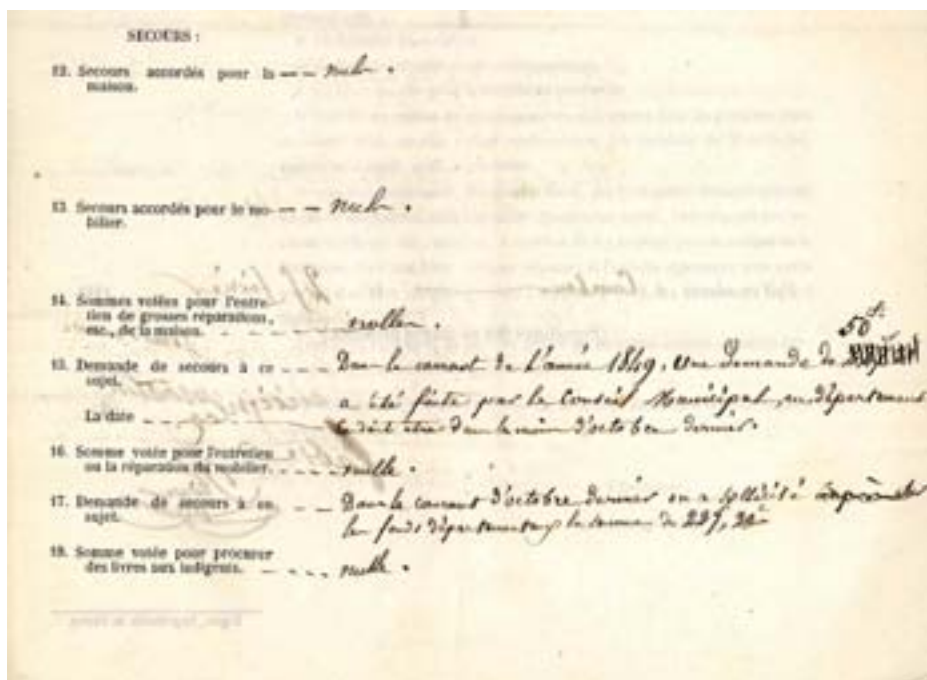 SECOURS :
12. Secours accordés pour la — — nul .
maison.
13. Secours accordés pour le mo- — — nul .
bilier.
14. Sommes votées pour l'entre-
tien de grosses réparations,
etc., de la maison. nulle .
50 f.
15. Demande de secours à ce Dans le courant de l'année 1849, une demande de
sujet.
a été faite par le Conseil Municipal, au département
La date
ce doit être dans le mois d'octobre dernier.
16. Somme votée pour l'entretien
ou la réparation du mobilier. nulle .
17. Demande de secours à ce Dans le courant d'octobre dernier on a sollicité
sujet.
les fonds départementaux la somme de
18. Somme votée pour procurer
des livres aux indigents. nulle .